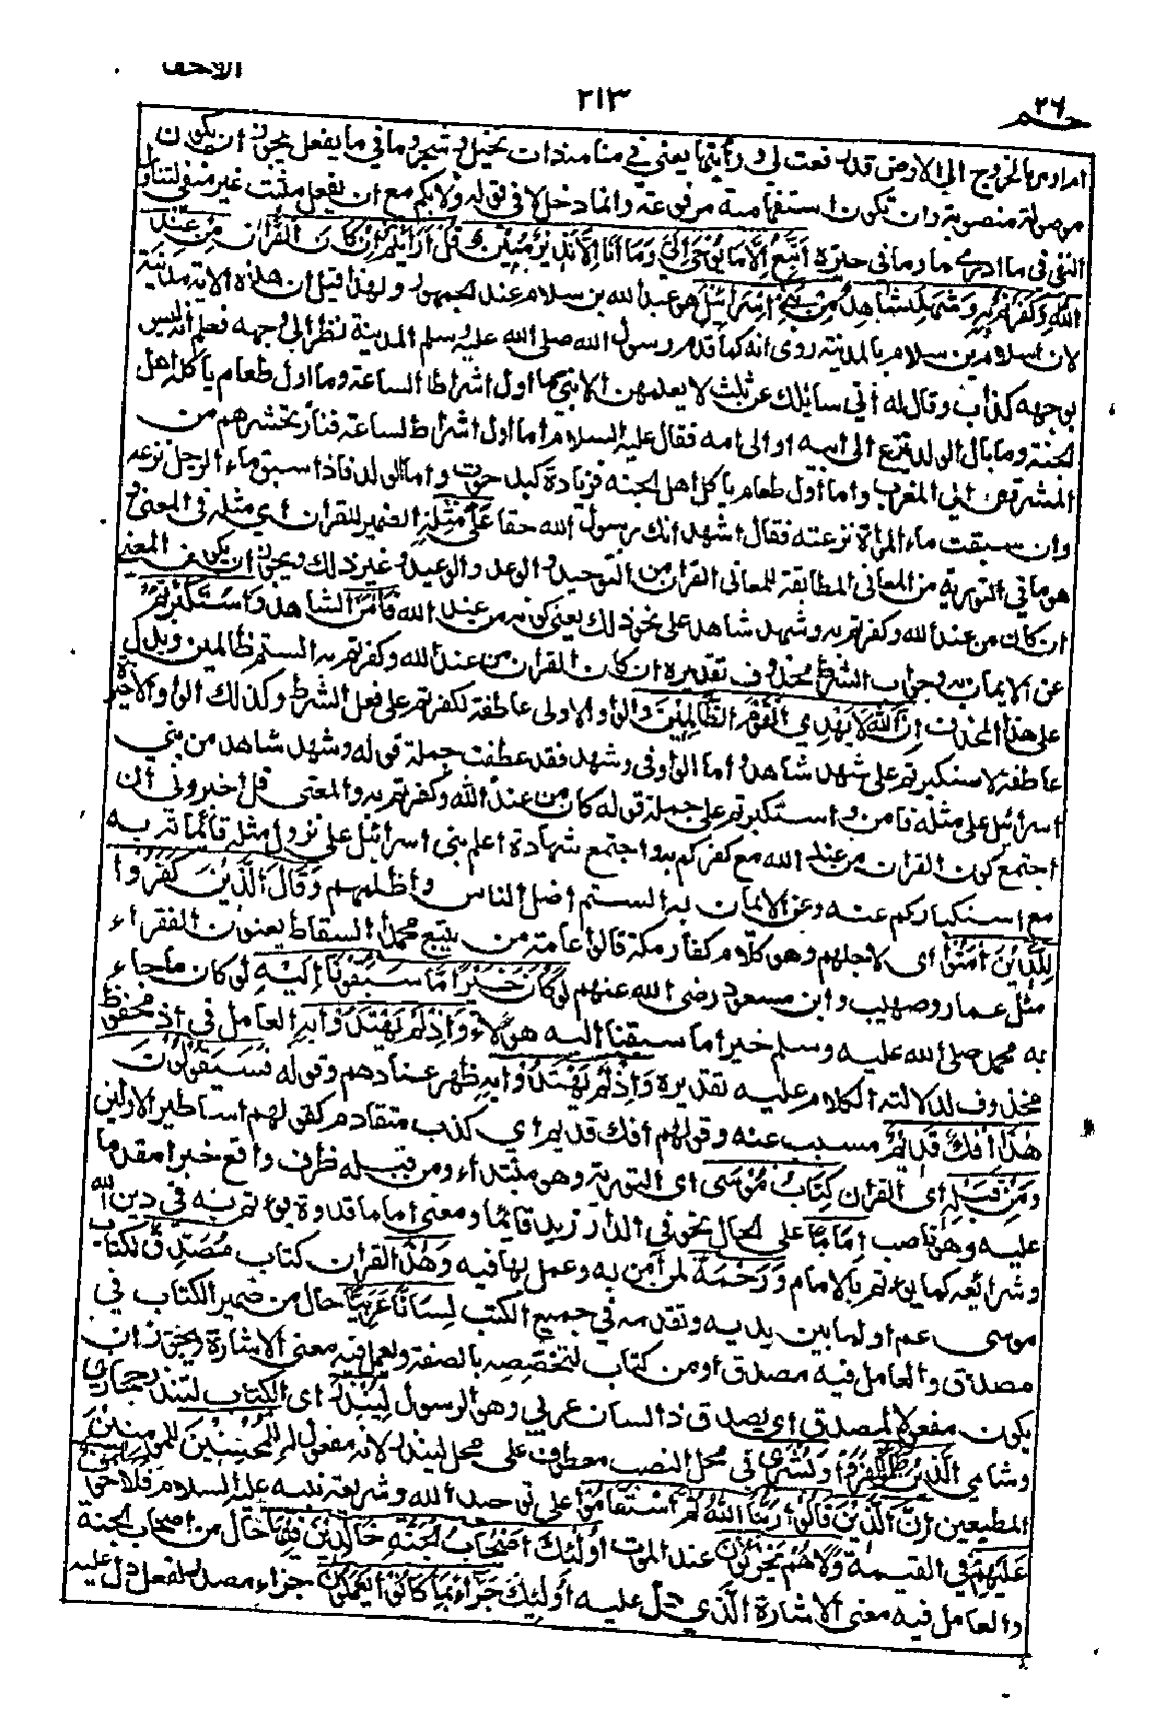 الاحقا
٢١٣
حـم ٢٦
امرا ومن بالخروج الى الارض قد رفعت لى ورأيتها يعنى فى منامه ذات نخيل وشجر وما فى ما يفعل يجوز ان يكون
موصولة منصوبة وان تكون استفهامية مرفوعة وانما دخل لا فى قوله ولا بكم مع ان يفعل مثبت غير منفى لتناول
النفى فى ما ادرى ما وما فى حيزه اَتَّبِعُ اِلَّا مَا يُوحَى اِلَىَّ وَمَا اَنَا اِلَّا نَذِيرٌ مُبِينٌ قُلْ اَرَاَيْتُمْ اِنْ كَانَ الْقُرْاٰنُ مِنْ عِنْدِ
اللّٰهِ وَكَفَرْتُمْ بِهِ وَشَهِدَ شَاهِدٌ مِنْ بَنِى اِسْرَائِيلَ هو عبد الله بن سلام عند الجمهور ولهذا قيل ان هذه الاية مدنية
لان اسلام بن سلام بالمدينة روى انه لما قدم رسول الله صلى الله عليه وسلم المدينة نظر الى وجهه فعلم انه ليس
بوجه كذاب وقال له انى سائلك عن ثلث لا يعلمهن الا نبى ما اول اشراط الساعة وما اول طعام ياكله اهل
الجنة وما بال الولد ينزع الى ابيه او الى امه فقال عليه السلام اما اول اشراط الساعة فنار تحشرهم من
المشرق الى المغرب واما اول طعام ياكل اهل الجنة فزيادة كبد حوت واما الولد فاذا سبق ماء الرجل نزعه
وان سبقت ماء المرأة نزعته فقال اشهد انك رسول الله حقا عَلَى مِثْلِهِ الضمير للقران اى مثله فى المعنى و
هو ما فى التورية من المعانى المطابقة للمعانى القران من التوحيد والوعد والوعيد وغير ذلك ويجوز ان يكون المعنى
ان كان من عند الله وكفرتم به وشهد شاهد على نحو ذلك يعنى كونه من عند الله فَاٰمَنَ الشاهد وَاسْتَكْبَرْتُمْ
عن الايمان به وجواب الشرط محذوف تقديره ان كان القران من عند الله وكفرتم به الستم ظالمين ويدل
على هذا المحذوف اِنَّ اللّٰهَ لَا يَهْدِى الْقَوْمَ الظَّالِمِينَ والواو الاولى عاطفة لكفرتم على فعل الشرط وكذلك الواو الاخيرة
عاطفة لاستكبرتم على شهد شاهد اما الواو فى وشهد فقد عطفت جملة قوله وشهد شاهد من بنى
اسرائيل على مثله فامن واستكبرتم على جملة قوله كان من عند الله وكفرتم به والمعنى قل اخبرونى ان
اجتمع كون القران من عند الله مع كفركم به واجتمع شهادة اعلم بنى اسرائيل على نزول مثله فايمانه به
مع استكباركم عنه وعن الايمان به الستم اضل الناس واظلمهم وَقَالَ الَّذِينَ كَفَرُوا
لِلَّذِينَ اٰمَنُوا اى لاجلهم وهو كلام كفار مكة قالوا عامة من يتبع محمدا السقاط يعنون الفقراء
مثل عمار وصهيب وابن مسعود رضى الله عنهم لَوْ كَانَ خَيْرًا مَا سَبَقُونَا اِلَيْهِ لو كان ما جاء
به محمد صلى الله عليه وسلم خيرا ما سبقنا اليه هؤلاء وَاِذْ لَمْ يَهْتَدُوا بِهِ العامل فى اذ محذوف
محذوف لدلالة الكلام عليه تقديره وَاِذْ لَمْ يَهْتَدُوا بِهِ ظهر عنادهم وقوله فَسَيَقُولُونَ
هٰذَا اِفْكٌ قَدِيمٌ مسبب عنه وقولهم افك قديم اى كذب متقادم كقولهم اساطير الاولين
وَمِنْ قَبْلِهِ اى القران كِتَابُ مُوسَى اى التورية وهو مبتداء ومن قبله ظرف واقع خبرا مقدما
عليه وهو ناصب اِمَامًا على الحال نحو فى الدار زيد قائما ومعنى اماما قدوة يؤتم به فى دين الله
وشرائعه كما يؤتم بالامام وَرَحْمَةً لمن امن به وعمل بها فيه وَهٰذَا القران كتاب مُصَدِّقٌ لكتاب
موسى عم او لما بين يديه وتقدمه فى جميع الكتب لِسَانًا عَرَبِيًّا حال من ضمير الكتاب فى
مصدق والعامل فيه مصدق او من كتاب لتخصصه بالصفة ويعمل فيه معنى الاشارة ويجوز ان
يكون مفعولا لمصدق اى يصدق ذا لسان عربى وهو الرسول لِيُنْذِرَ اى الكتاب لتنذر حجازى
وشامى الَّذِينَ ظَلَمُوا كفروا وَبُشْرَى فى محل النصب معطوف على محل لينذر لانه مفعول له لِلْمُحْسِنِينَ للمؤمنين
المطيعين اِنَّ الَّذِينَ قَالُوا رَبُّنَا اللّٰهُ ثُمَّ اسْتَقَامُوا على توحيد الله وشريعة نبيه عليه السلام فَلَا خَوْفٌ
عَلَيْهِمْ فى القيمة وَلَا هُمْ يَحْزَنُونَ عند الموت اُولٰئِكَ اَصْحَابُ الْجَنَّةِ خَالِدِينَ فِيهَا حال من اصحاب الجنة
والعامل فيه معنى الاشارة الَّذِى دل عليه اُولٰئِكَ جَزَاءً بِمَا كَانُوا يَعْمَلُونَ جزاء مصدر لفعل دل عليه